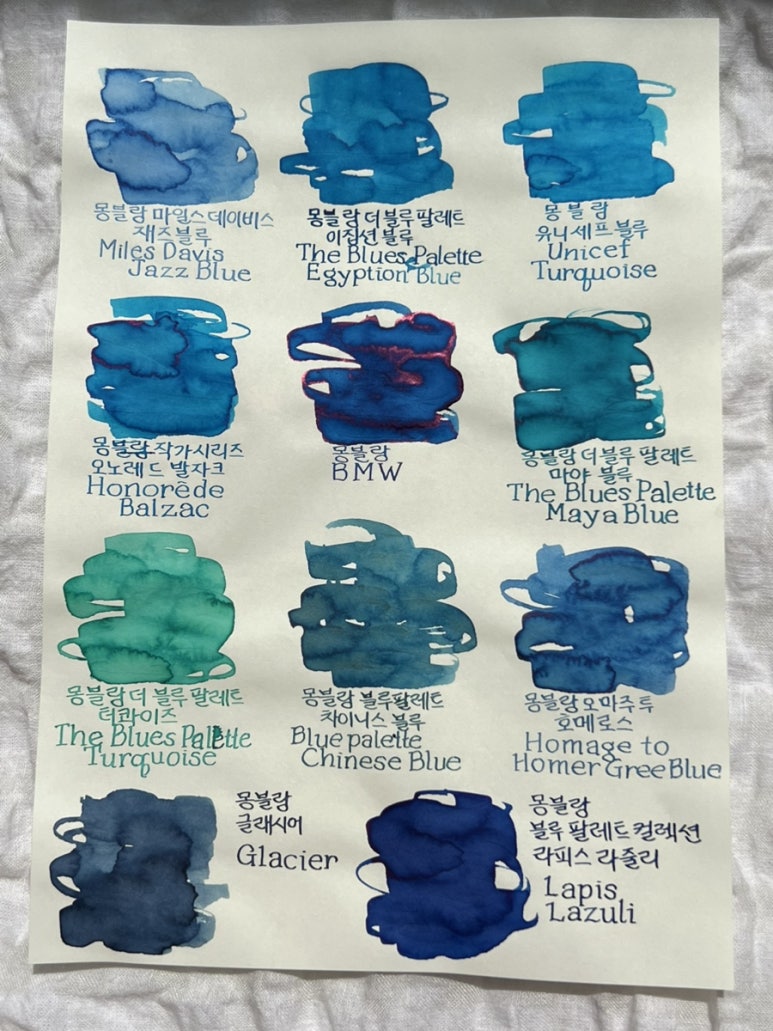 몽블랑 마일스데이비스
재즈블루
Miles Davis
Jazz Blue
몽블랑 더 블루 팔레트
이집션 블루
The Blues Palette
Egyption Blue
몽블랑
유니세프 블루
Unicef
Turquoise
몽블랑 작가시리즈
오노레 드 발자크
Honorêde
Balzac
몽블랑
BMW
몽블랑 더 블루 팔레트
마야 블루
The Blues Palette
Maya Blue
몽블랑 더 블루 팔레트
터콰이즈
The Blues Palette
Turquoise
몽블랑 블루팔레트
차이니스 블루
Blue palette
Chinese Blue
몽블랑 오마주 투
호메로스
Homage to
Homer Gree Blue
몽블랑
글래시어
Glacier
몽블랑
블루 팔레트 컬렉션
라피스 라줄리
Lapis
Lazuli